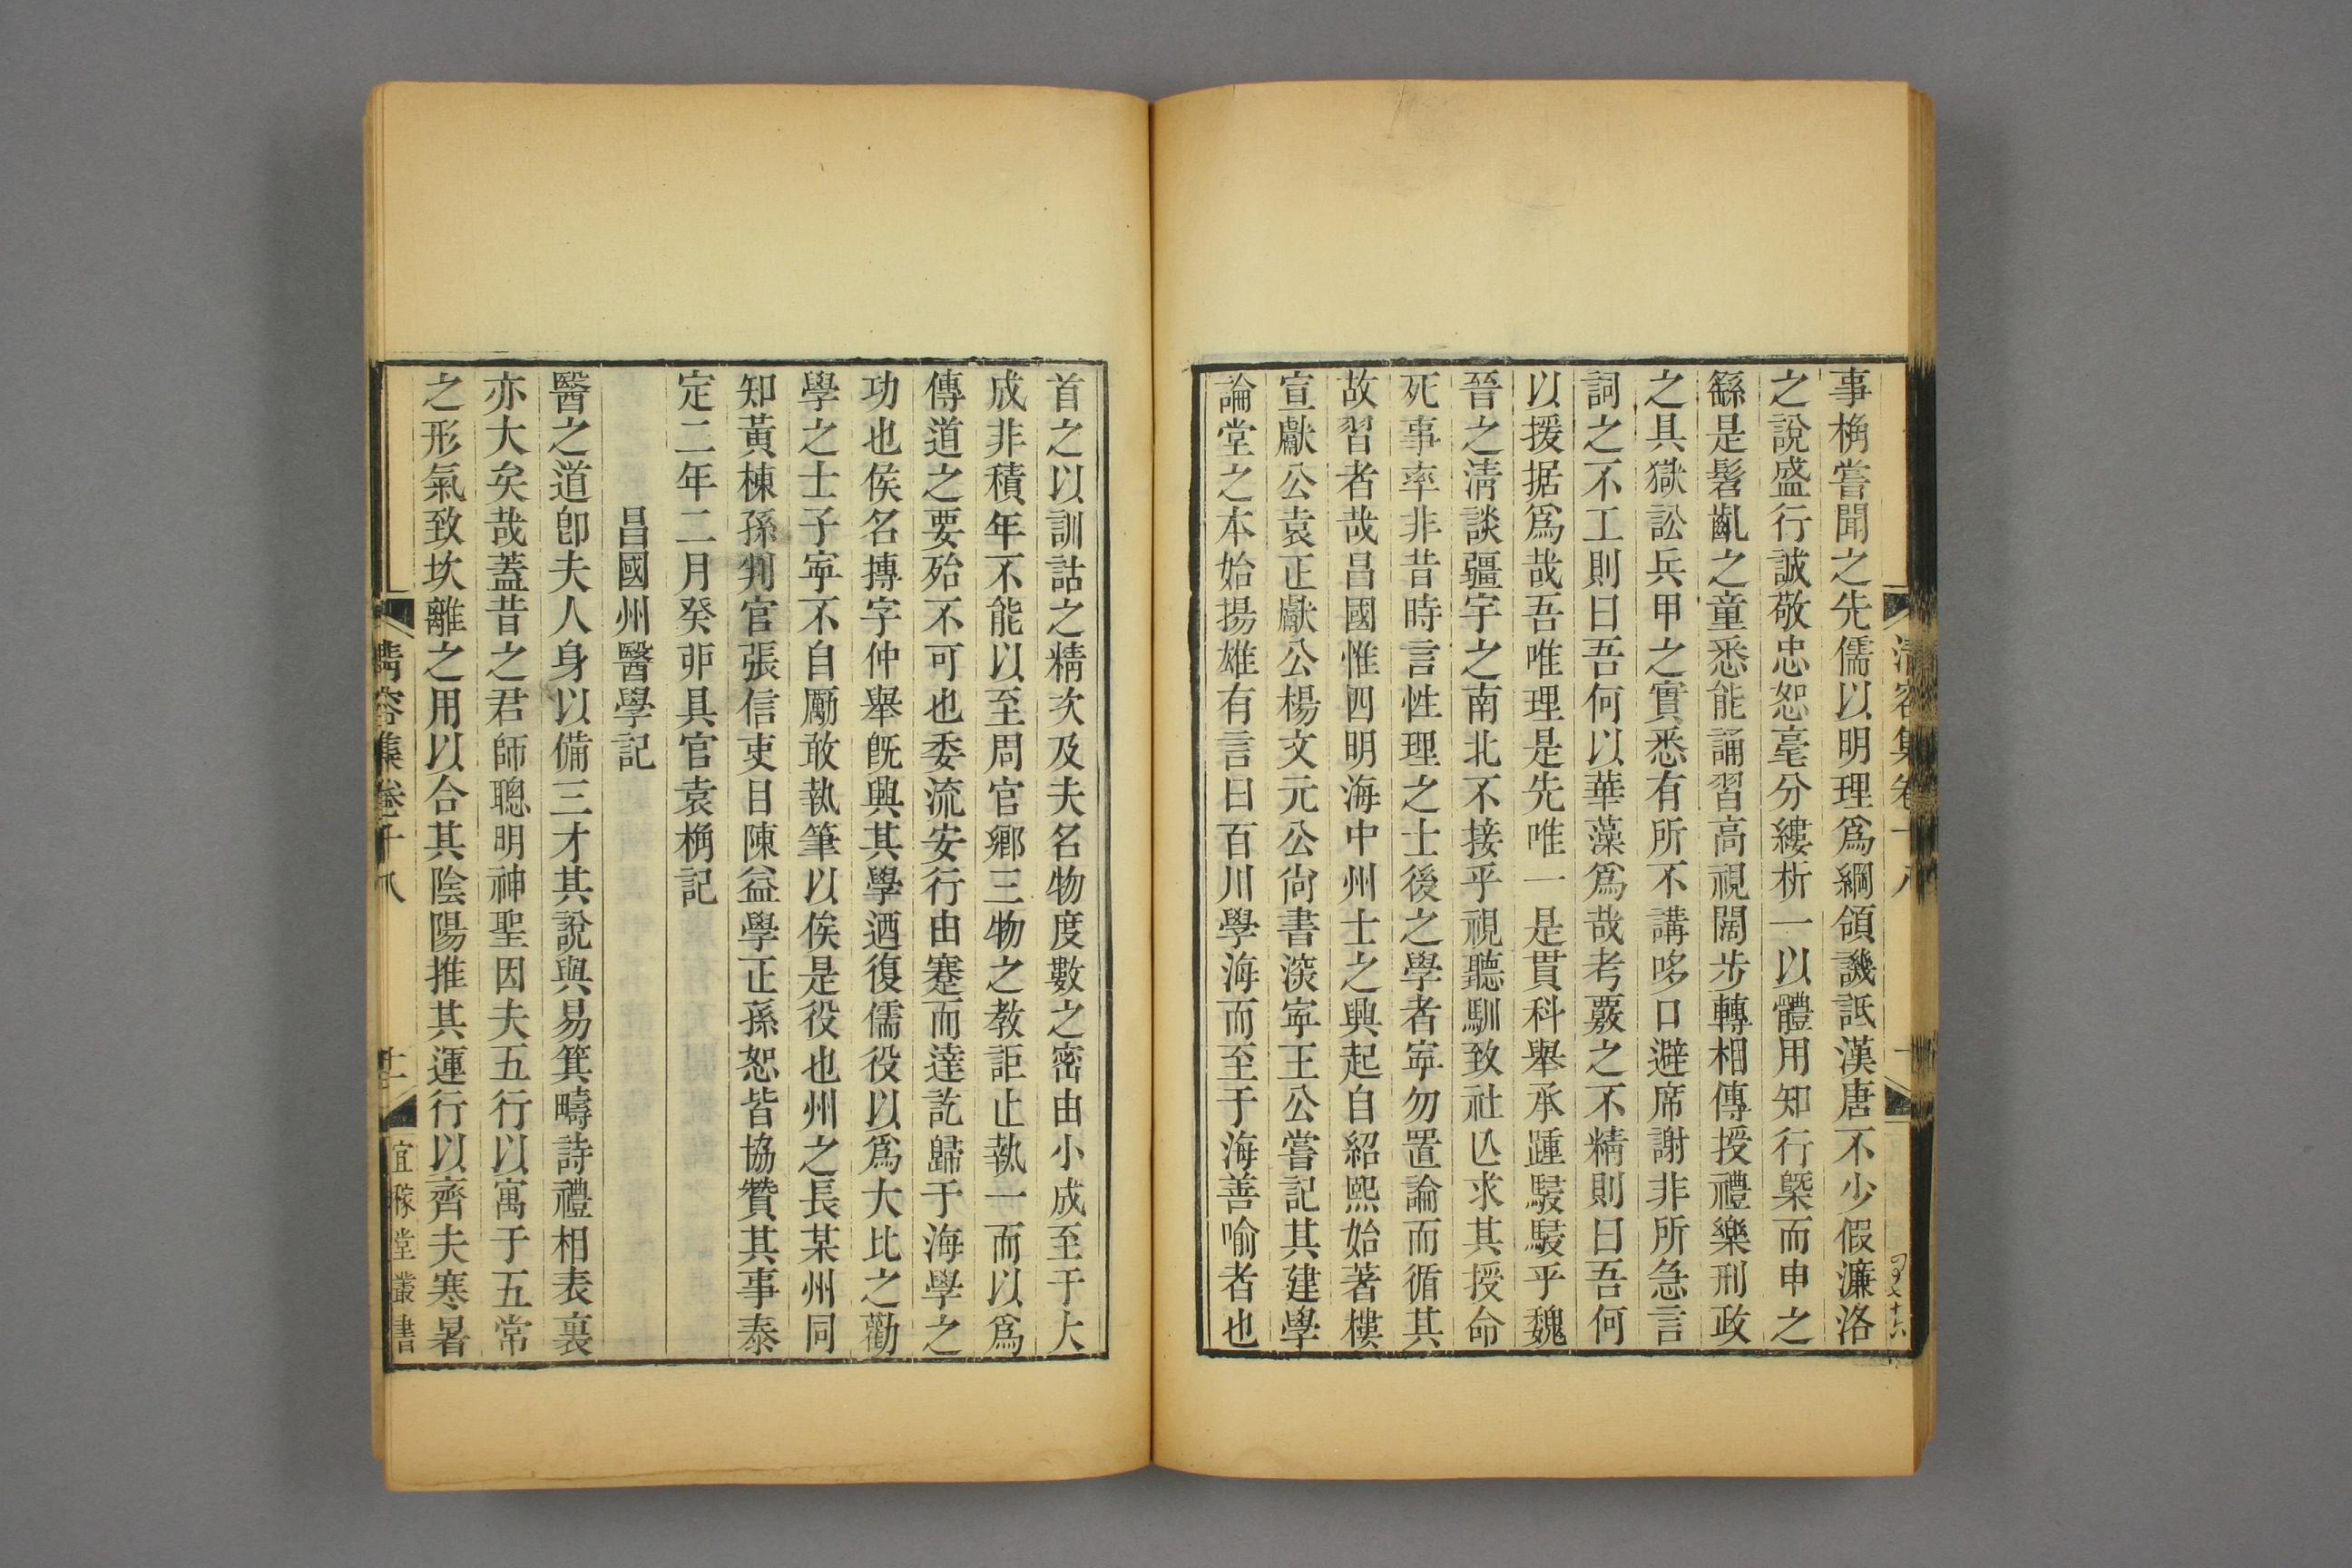 事桷嘗聞之先儒以明理爲綱領譏詆漢唐不少假濂洛
之說盛行誠敬忠恕毫分縷析一以體用知行槩而申之
繇是髫齓之童悉能誦習高視闊步轉相傳授禮樂刑政
之具獄訟兵甲之實悉有所不講哆口避席謝非所急言
詞之不工則曰吾何以華藻爲哉考覈之不精則曰吾何
以援据爲哉吾唯理是先唯一是貫科舉承踵駸駸乎魏
晉之淸談疆宇之南北不接乎視聽馴致社亾求其授命
死事率非昔時言性理之士後之學者寧勿置論而循其
故習者哉昌國惟四明海中州士之興起自紹熙始著樓
宣獻公袁正獻公楊文元公尙書深寧王公嘗記其建學
論堂之本始揚雄有言曰百川學海而至于海善喻者也
首之以訓詁之精次及夫名物度數之密由小成至于大
成非積年不能以至周官鄉三物之教詎止執一而以爲
傳道之要殆不可也委流安行由蹇而達訖歸于海學之
功也侯名摶字仲舉旣興其學迺復儒役以爲大比之勸
學之士子寧不自勵敢執筆以俟是役也州之長某州同
知黃棟孫判官張信吏目陳益學正孫恕皆協贊其事泰
定二年二月癸丣具官袁桷記
昌國州醫學記
醫之道卽夫人身以備三才其說與易箕疇詩禮相表裏
亦大矣哉蓋昔之君師聰明神聖因夫五行以寓于五常
之形氣致坎離之用以合其陰陽推其運行以齊夫寒暑
清容集卷十八
宜稼堂叢書